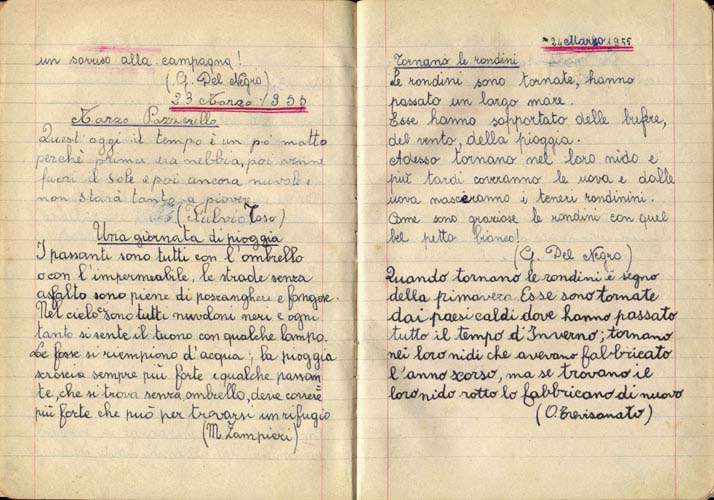 un sorriso alla campagna!
(G. Del Negro)
23 Marzo 1955
Marzo Pazzerello
Quest'oggi il tempo è un po' matto
perchè prima era nebbia, poi venne
fuori il sole e poi ancora nuvole,
non starà tanto a piovere
(Fulvio Toso)
Una giornata di pioggia
I passanti sono tutti con l'ombrello
o con l'impermeabile, le strade senza
asfalto sono piene di pozzanghere e fangose.
Nel cielo sono tutti nuvoloni neri e ogni
tanto si sente il tuono con qualche lampo.
Le fosse si riempiono d'acqua; la pioggia
scroscia sempre più forte e qualche passan
te, che si trova senza ombrello, deve correre
più forte che può per trovarsi un rifugio
(M. Zampieri)
24 Marzo 1955
Tornano le rondini
Le rondini sono tornate, hanno
passato un largo mare.
Esse hanno sopportato delle bufere,
del vento, della pioggia.
Adesso tornano nel loro nido e
più tardi coveranno le uova e dalle
uova nasceranno i teneri rondinini.
Come sono graziose le rondini con quel
bel petto bianco!
(G. Del Negro)
Quando tornano le rondini è segno
della primavera. Esse sono tornate
dai paesi caldi dove hanno passato
tutto il tempo d'Inverno; tornano
nei loro nidi che avevano fabbricato
l'anno scorso, ma se trovano il
loro nido rotto lo fabbricano di nuovo
(O. Trevisanato)